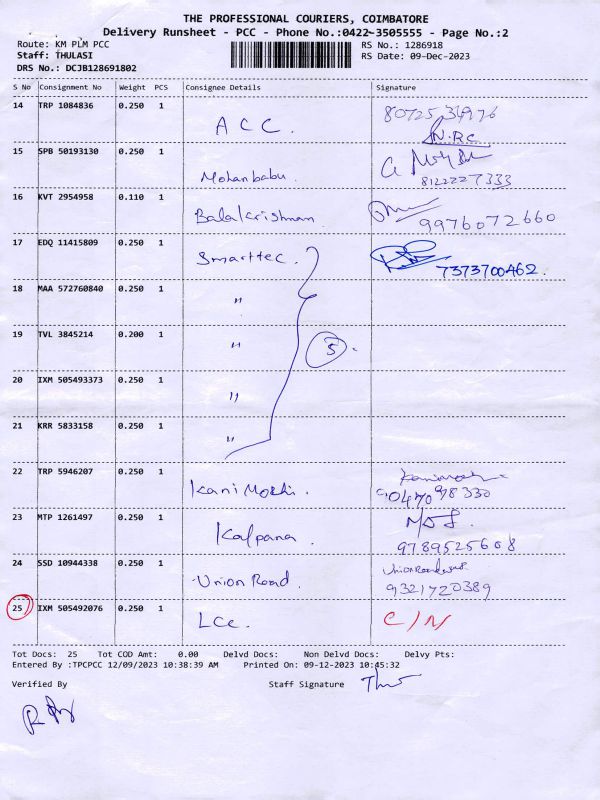 THE PROFESSIONAL COURIERS, COIMBATORE
Delivery Runsheet - PCC - Phone No.:0422-3505555 - Page No.:2
Route: KM PLM PCC RS No.: 1286918
Staff: THULASI RS Date: 09-Dec-2023
DRS No.: DCJB128691802
S No Consignment No Weight PCS Consignee Details Signature
14 TRP 1084836 0.250 1 ACC. 80725 34976
N.RC
15 SPB 50193130 0.250 1 Mohanbabu.
8122227333
16 KVT 2954958 0.110 1 Balakrishnan
9976072660
17 EDQ 11415809 0.250 1 Smarttec.
7373700462.
18 MAA 572760840 0.250 1 "
19 TVL 3845214 0.200 1 " 5
20 IXM 505493373 0.250 1 "
21 KRR 5833158 0.250 1 "
22 TRP 5946207 0.250 1 Kanimozhi.
9047098330
23 MTP 1261497 0.250 1 Kalpana
9789525608
24 SSD 10944338 0.250 1 Union Road.
9321720389
25 IXM 505492076 0.250 1 LCC. C/N
Tot Docs: 25 Tot COD Amt: 0.00 Delvd Docs: Non Delvd Docs: Delvy Pts:
Entered By :TPCPCC 12/09/2023 10:38:39 AM Printed On: 09-12-2023 10:45:32
Verified By Staff Signature